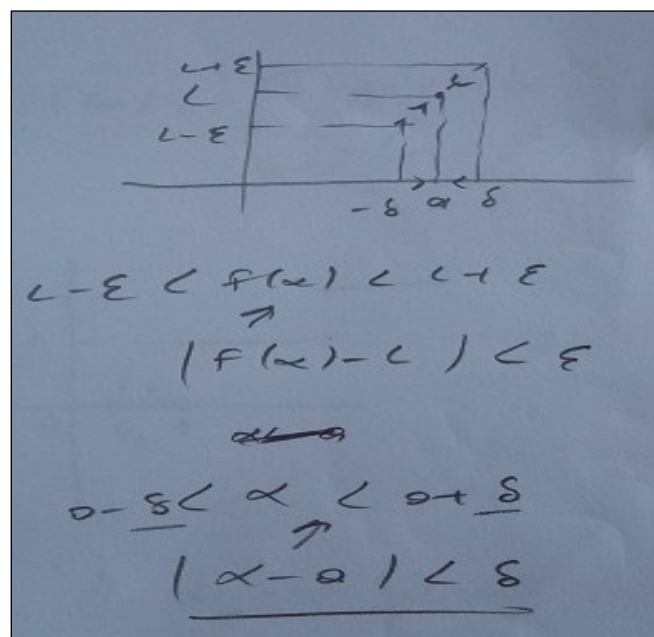 L+ε
L
L-ε
-δ a δ
L-ε < f(x) < L+ε
|f(x)-L| < ε
a-δ < x < a+δ
|x-a| < δ